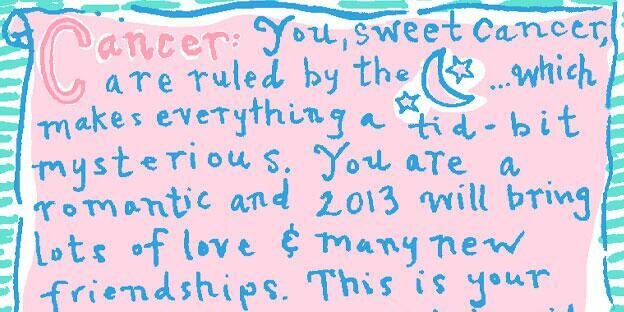 Cancer: You, sweet cancer,
are ruled by the ...which
makes everything a tid-bit
mysterious. You are a
romantic and 2013 will bring
lots of love & many new
friendships. This is your